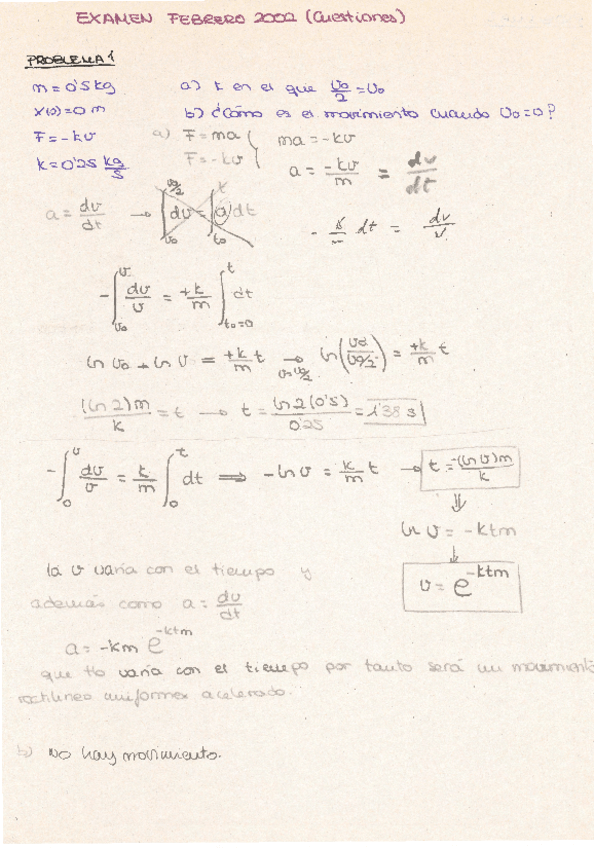 EXAMEN FEBRERO 2002 (Cuestiones)
PROBLEMA 1
m = 0'5 kg a) t en el que v₀/2 = v₀
x(0) = 0 m b) ¿Cómo es el movimiento cuando v₀ = 0?
F = -kv a) F = ma ma = -kv
k = 0'25 kg/s F = -kv a = -kv/m = dv/dt
a = dv/dt → ∫_{v₀}^{v₀/2} dv = ∫_{t₀}^{t} a dt - k/m dt = dv/v
-∫_{v₀}^{v} dv/v = +k/m ∫_{t₀=0}^{t} dt
ln v₀ - ln v = +k/m t → v=v₀/2 ln(v₀/(v₀/2)) = +k/m t
(ln 2)m/k = t → t = ln2(0'5)/0'25 = 1'38 s
-∫_{0}^{v} dv/v = k/m ∫_{0}^{t} dt ⟹ -ln v = k/m t → t = -(ln v)m/k
⇓
ln v = -ktm
↓
v = e^{-ktm}
la v varía con el tiempo y
además como a = dv/dt
a = -km e^{-ktm}
que varía con el tiempo por tanto será un movimiento
rectilíneo uniformex acelerado...
b) No hay movimiento.